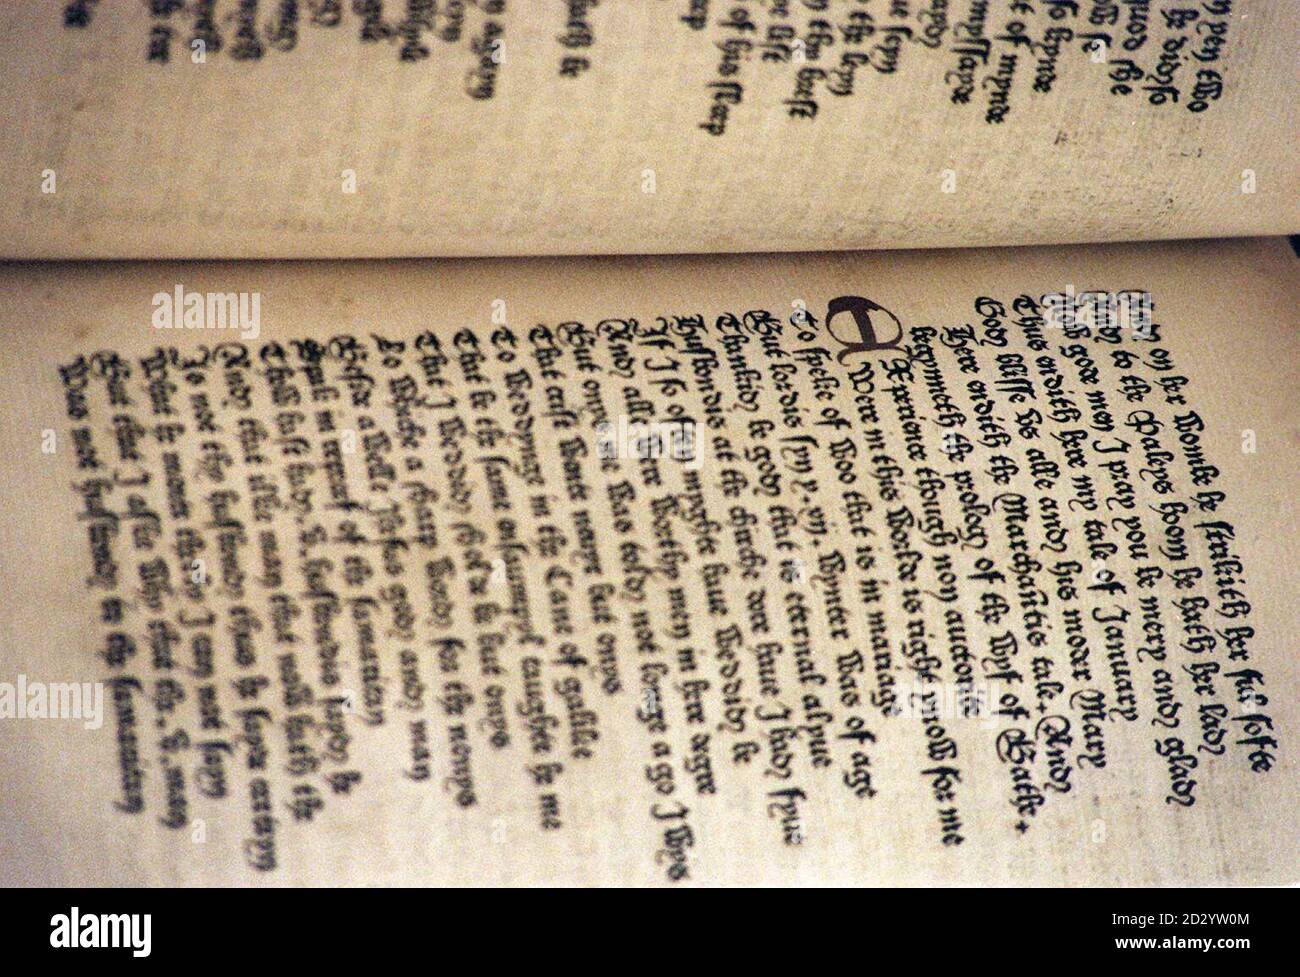 quod she
so kynde
t of mynde
of his sleep
And on her wombe he strikith her ful softe
And to the Paleys hoom he hath her lady
Now gode men I pray you be mery and glady
Thus endith here my tale of January
Gody blisse vs alle andy his moder Mary
Here endith the Marchantis tale. Andy
begynneth the prology of the wyf of Bathe.
Experience though non auctorite
Were in this worlde is right ynow for me
To speke of woo that is in mariage
But lordis syn y. xij. wynter was of age
Thankidy be gody that is eternal alyue
Husbondis at the chirche dore haue I hady fyue
If I so often myghte haue weddidy be
Andy alle were worthy men in here degre
But onys me was toldy not longe a go I wys
That criste wente neuyr but onys
To weddynge in the Cane of galilee
That be the same ensampyl taughte he me
That I weddidy sholde be but onys
Lo whiche a sharp wordy for the nonys
Beside a welle Jhesus gody andy man
Spak in repref of the samaritan
Thou hast hady .v. husbondis saydy he
Andy that ilke man that now hath the
Is not thy husbondy thus he sayde certeyn
What he mente therby I can not sayn
But that I aske why that the .v. man
Was not husbondy to the samaritan
alamy
Image ID: D2YW0M
www.alamy.com